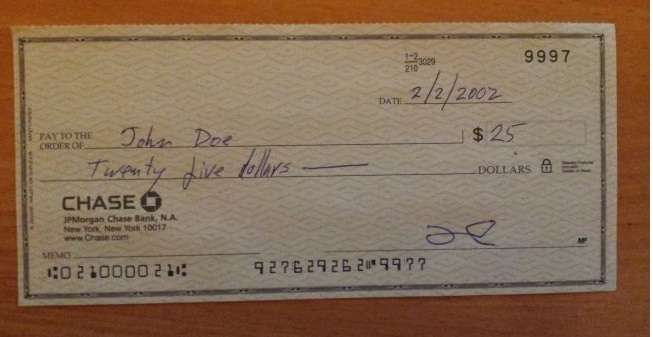 1-2
210 3029
9997
DATE 2/2/2002
PAY TO THE
ORDER OF John Doe $ 25
Twenty five dollars DOLLARS
CHASE
JPMorgan Chase Bank, N.A.
New York, New York 10017
www.Chase.com
MEMO MP
⑆021000021⑆ 927629262⑈9977